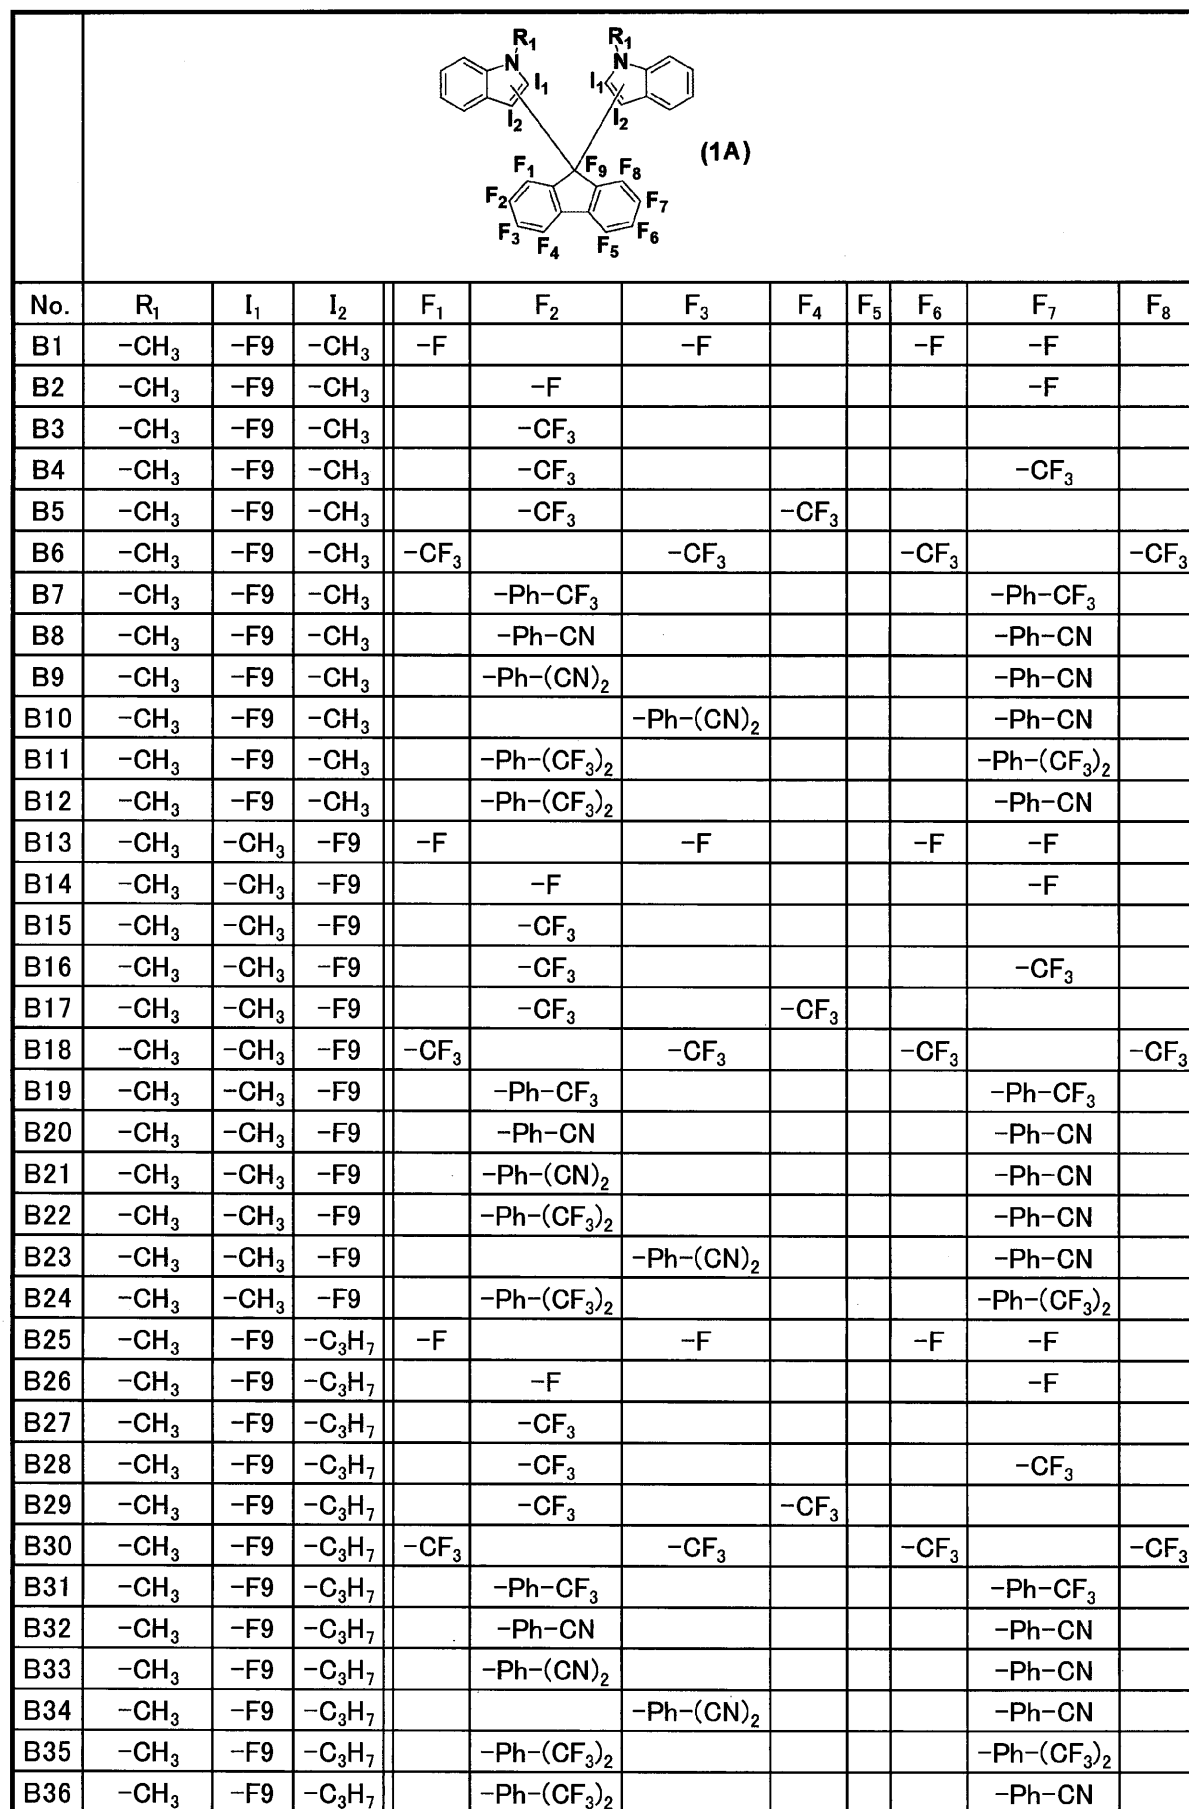 R₁ R₁
N N
I₁ I₁
I₂ I₂
(1A)
F₁ F₉ F₈
F₂ F₇
F₃ F₆
F₄ F₅
No. R₁ I₁ I₂ F₁ F₂ F₃ F₄ F₅ F₆ F₇ F₈
B1 -CH₃ -F9 -CH₃ -F -F -F -F
B2 -CH₃ -F9 -CH₃ -F -F
B3 -CH₃ -F9 -CH₃ -CF₃
B4 -CH₃ -F9 -CH₃ -CF₃ -CF₃
B5 -CH₃ -F9 -CH₃ -CF₃ -CF₃
B6 -CH₃ -F9 -CH₃ -CF₃ -CF₃ -CF₃ -CF₃
B7 -CH₃ -F9 -CH₃ -Ph-CF₃ -Ph-CF₃
B8 -CH₃ -F9 -CH₃ -Ph-CN -Ph-CN
B9 -CH₃ -F9 -CH₃ -Ph-(CN)₂ -Ph-CN
B10 -CH₃ -F9 -CH₃ -Ph-(CN)₂ -Ph-CN
B11 -CH₃ -F9 -CH₃ -Ph-(CF₃)₂ -Ph-(CF₃)₂
B12 -CH₃ -F9 -CH₃ -Ph-(CF₃)₂ -Ph-CN
B13 -CH₃ -CH₃ -F9 -F -F -F -F
B14 -CH₃ -CH₃ -F9 -F -F
B15 -CH₃ -CH₃ -F9 -CF₃
B16 -CH₃ -CH₃ -F9 -CF₃ -CF₃
B17 -CH₃ -CH₃ -F9 -CF₃ -CF₃
B18 -CH₃ -CH₃ -F9 -CF₃ -CF₃ -CF₃ -CF₃
B19 -CH₃ -CH₃ -F9 -Ph-CF₃ -Ph-CF₃
B20 -CH₃ -CH₃ -F9 -Ph-CN -Ph-CN
B21 -CH₃ -CH₃ -F9 -Ph-(CN)₂ -Ph-CN
B22 -CH₃ -CH₃ -F9 -Ph-(CF₃)₂ -Ph-CN
B23 -CH₃ -CH₃ -F9 -Ph-(CN)₂ -Ph-CN
B24 -CH₃ -CH₃ -F9 -Ph-(CF₃)₂ -Ph-(CF₃)₂
B25 -CH₃ -F9 -C₃H₇ -F -F -F -F
B26 -CH₃ -F9 -C₃H₇ -F -F
B27 -CH₃ -F9 -C₃H₇ -CF₃
B28 -CH₃ -F9 -C₃H₇ -CF₃ -CF₃
B29 -CH₃ -F9 -C₃H₇ -CF₃ -CF₃
B30 -CH₃ -F9 -C₃H₇ -CF₃ -CF₃ -CF₃ -CF₃
B31 -CH₃ -F9 -C₃H₇ -Ph-CF₃ -Ph-CF₃
B32 -CH₃ -F9 -C₃H₇ -Ph-CN -Ph-CN
B33 -CH₃ -F9 -C₃H₇ -Ph-(CN)₂ -Ph-CN
B34 -CH₃ -F9 -C₃H₇ -Ph-(CN)₂ -Ph-CN
B35 -CH₃ -F9 -C₃H₇ -Ph-(CF₃)₂ -Ph-(CF₃)₂
B36 -CH₃ -F9 -C₃H₇ -Ph-(CF₃)₂ -Ph-CN